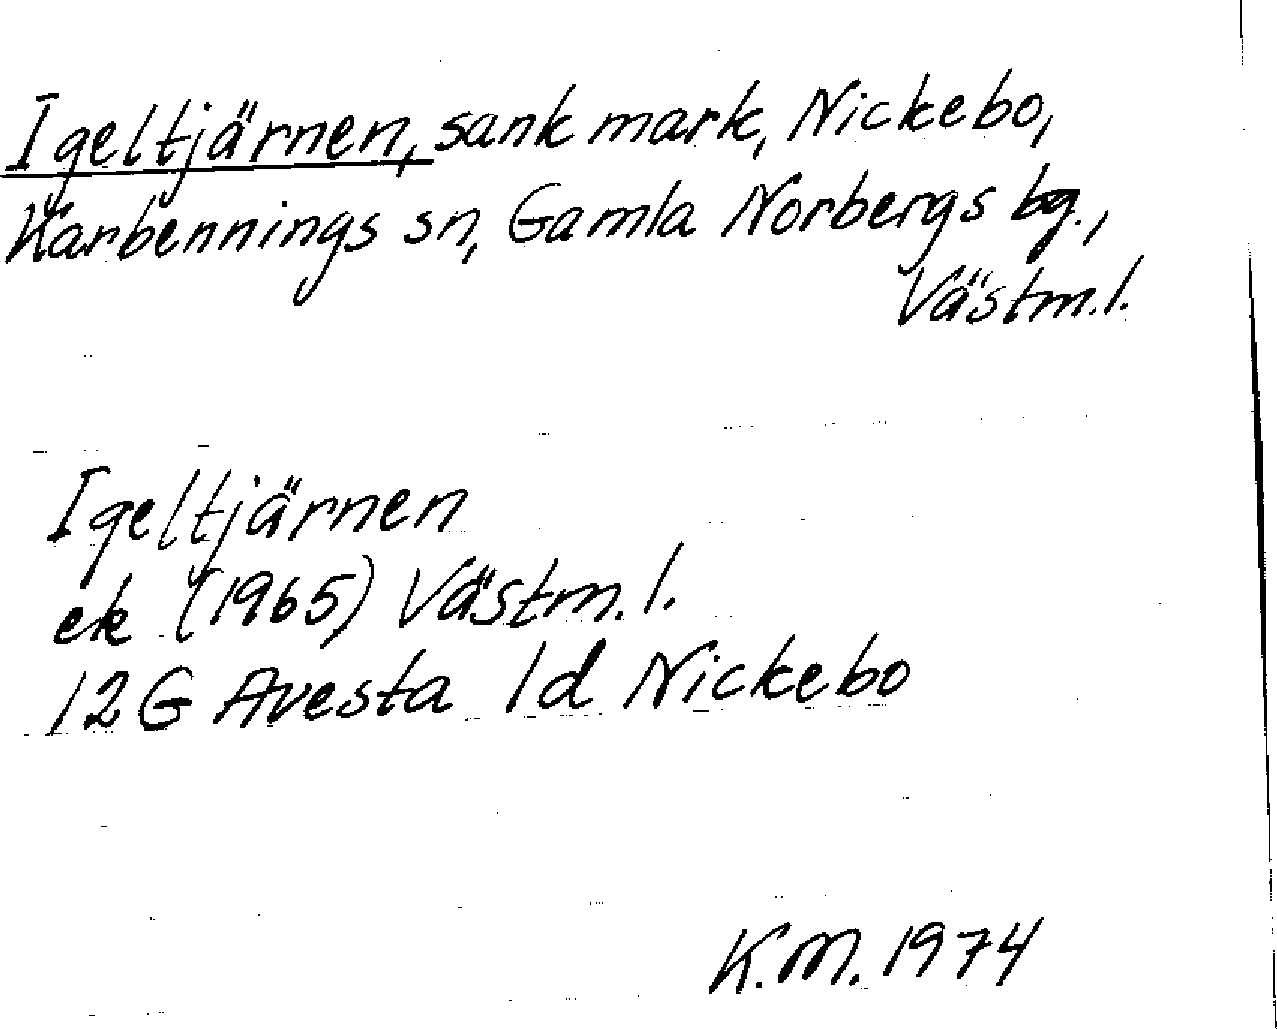 Igeltjärnen, sank mark, Nickebo,
Karbennings sn, Gamla Norbergs bg.,
Västm.l.
Igeltjärnen
ek (1965) Västm.l.
12G Avesta 1d Nickebo
K.M. 1974